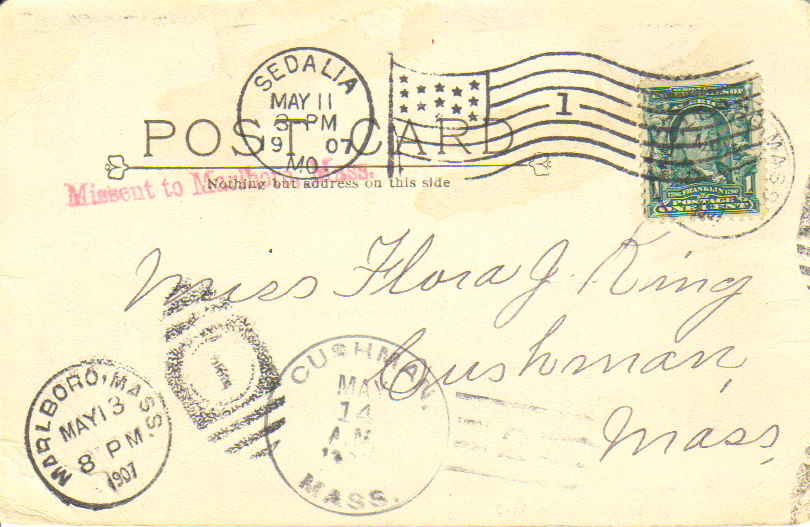 SEDALIA
MAY 11
3-PM
19 07
MO.
1
POST CARD
Missent to Marlboro, Mass.
Nothing but address on this side
MASS
1907
FRANKLIN
POSTAGE
1 ONE CENT 1
Miss Flora J. King
Cushman,
Mass,
MARLBORO, MASS.
MAY 13
8 PM
1907
1
CUSHMAN,
MAY
14
A.M.
MASS.